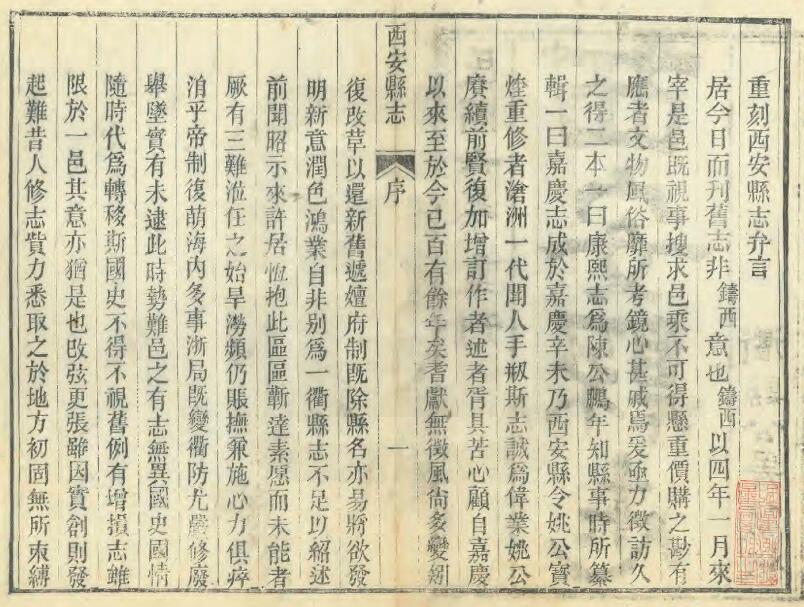 重刻西安縣志弁言
居今日而刊舊志非鑄西意也鑄西以四年一月來
宰是邑既視事搜求邑乘不可得懸重價購之尠有
應者文物風俗靡所考鏡心甚戚焉爰亟力徵訪久
之得二本一曰康熙志爲陳公鵬年知縣事時所纂
輯一曰嘉慶志成於嘉慶辛未乃西安縣令姚公寶
煃重修者滄洲一代聞人手剏斯志誠爲偉業姚公
賡續前賢復加增訂作者述者胥具苦心顧自嘉慶
以來至於今已百有餘年矣耆獻無徵風尚多變剏
西安縣志
序
一
復改草以還新舊遞嬗府制既除縣名亦易將欲發
明新意潤色鴻業自非别爲一衢縣志不足以紹述
前聞昭示來許居恆抱此區區蘄達素愿而未能者
厥有三難涖任之始旱澇頻仍賑撫兼施心力俱瘁
洎乎帝制復萌海内多事浙局既變衢防尤嚴修廢
舉墜實有未逮此時勢難邑之有志無異國史國情
隨時代爲轉移斯國史不得不視舊例有增損志雖
限於一邑其意亦猶是也改弦更張雖因實創則發
起難昔人修志貲力悉取之於地方初固無所束縛